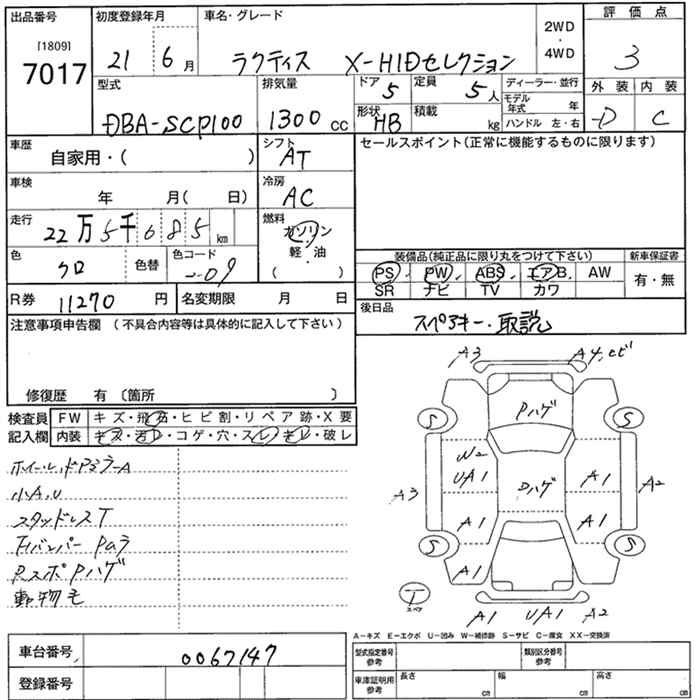 出品番号 初度登録年月 車名・グレード 2WD・4WD 評価点
[1809] 7017 21 6月 ラクティス X-HIDセレクション 3
型式 排気量 ドア 5 定員 5人 ディーラー・並行 外装 内装
DBA-SCP100 1300cc 形状 HB 積載 kg モデル年式 年 D C
ハンドル 左・右
車歴 自家用・( ) シフト AT セールスポイント(正常に機能するものに限ります)
車検 年 月( 日) 冷房 AC
走行 22万5千685km 燃料 ガソリン 軽・油 ( )
色 クロ 色替 色コード 209 装備品(純正品に限り丸をつけて下さい) 新車保証書
PS PW ABS エアB AW 有・無
SR ナビ TV カワ
R券 11270円 名変期限 月 日 後日品 スペアキー・取説
注意事項申告欄 (不具合内容等は具体的に記入して下さい)
修復歴 有 〔箇所 〕
検査員 FW キズ・飛石・ヒビ割・リペア跡・X要
記入欄 内装 キズ・汚レ・コゲ・穴・スレ・キレ・破レ
小A,U
スタッドレスT
Rスポ Pハゲ
動物毛
A3 A4,ヒビ
Pハゲ
S S
W2
UA1 Pハゲ A1
A3 A2
A1 A1
S S
A1
T スペア
A1 UA1 A2
A-キズ E-エクボ U-凹み W-補修跡 S-サビ C-腐食 XX-交換済
車台番号 0067147 型式指定番号 参考 類別区分番号 参考
登録番号 車庫証明用 参考 長さ cm 幅 cm 高さ cm